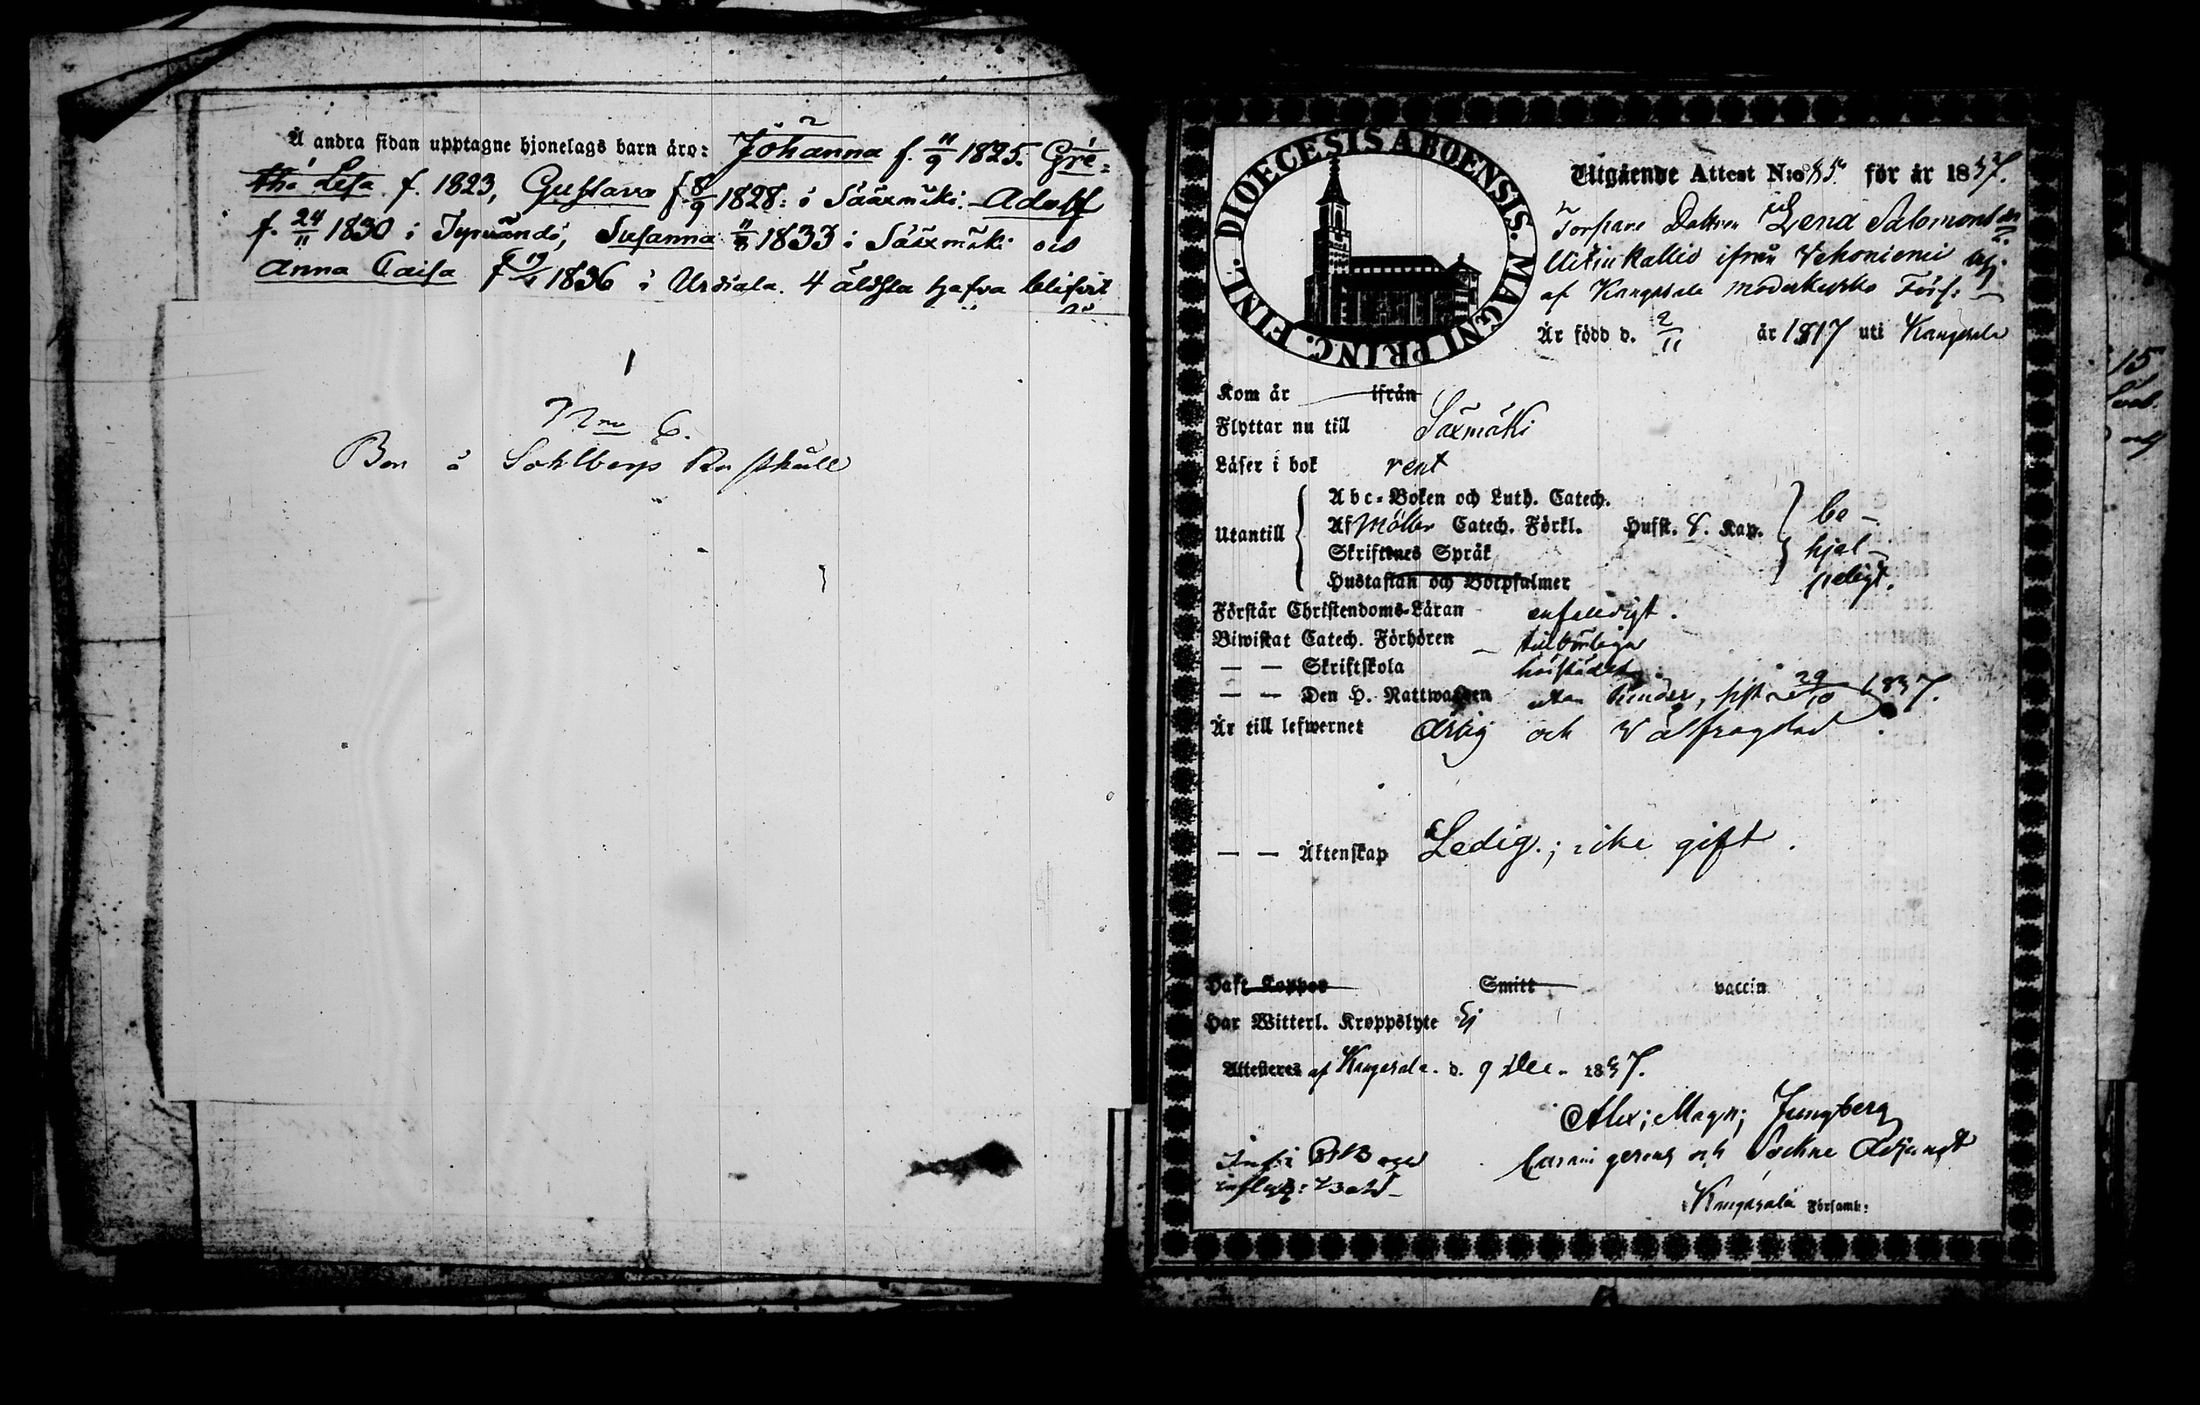 Å andra sidan upptagne hjonelags barn äro: Johanna f. 11/9 1825. Gre=
tha Lesa f. 1823, Gustava f. 8/9 1828: i Sääxmäki. Adolf
f. 24/11 1830 i Tyrvändö, Susanna 1833 i Sääxmäki och
Anna Caisa f 1836 i Urdiala. 4 äldsta hafva blifvit
Nro 6.
Bor å Sohlbergs
DIOECESIS ABOENSIS. MAGNI PRINC. FINL.
Utgående Attest N:o 85. för år 1837.
Torpare Dottren Lena Salomonsdr
ifrån Vehoniemi by
af Kangasala moderkyrko Förs:
Är född d. 2/11 år 1817 uti Kangasala
Kom år ifrån
Flyttar nu till Säxmäki
Läser i bok rent
Abc-Boken och Luth. Catech.
Utantill Af Möller Catech. Förkl. Hufst. 8. Kap. be-
Skriftenes Språk hjel-
Hustaflan och Botpsalmer peligt.
Förstår Christendoms-Läran enfaldigt.
Biwistat Catech. Förhören tillbörligen
— — Skriftskola
— — Den H. Nattwarden utan hinder, sist 29/10 1837.
Är till lefwernet ärlig och välfrägdad.
— — Äktenskap Ledig; icke gift.
Haft Koppor Smitt vaccin
Har Witterl. Kroppslyte Ej
Attesteras af Kangasala d. 9 Dec. 1837.
Alex; Magn; Jungberg
och Sockne Adjunct
Kangasala Församl: